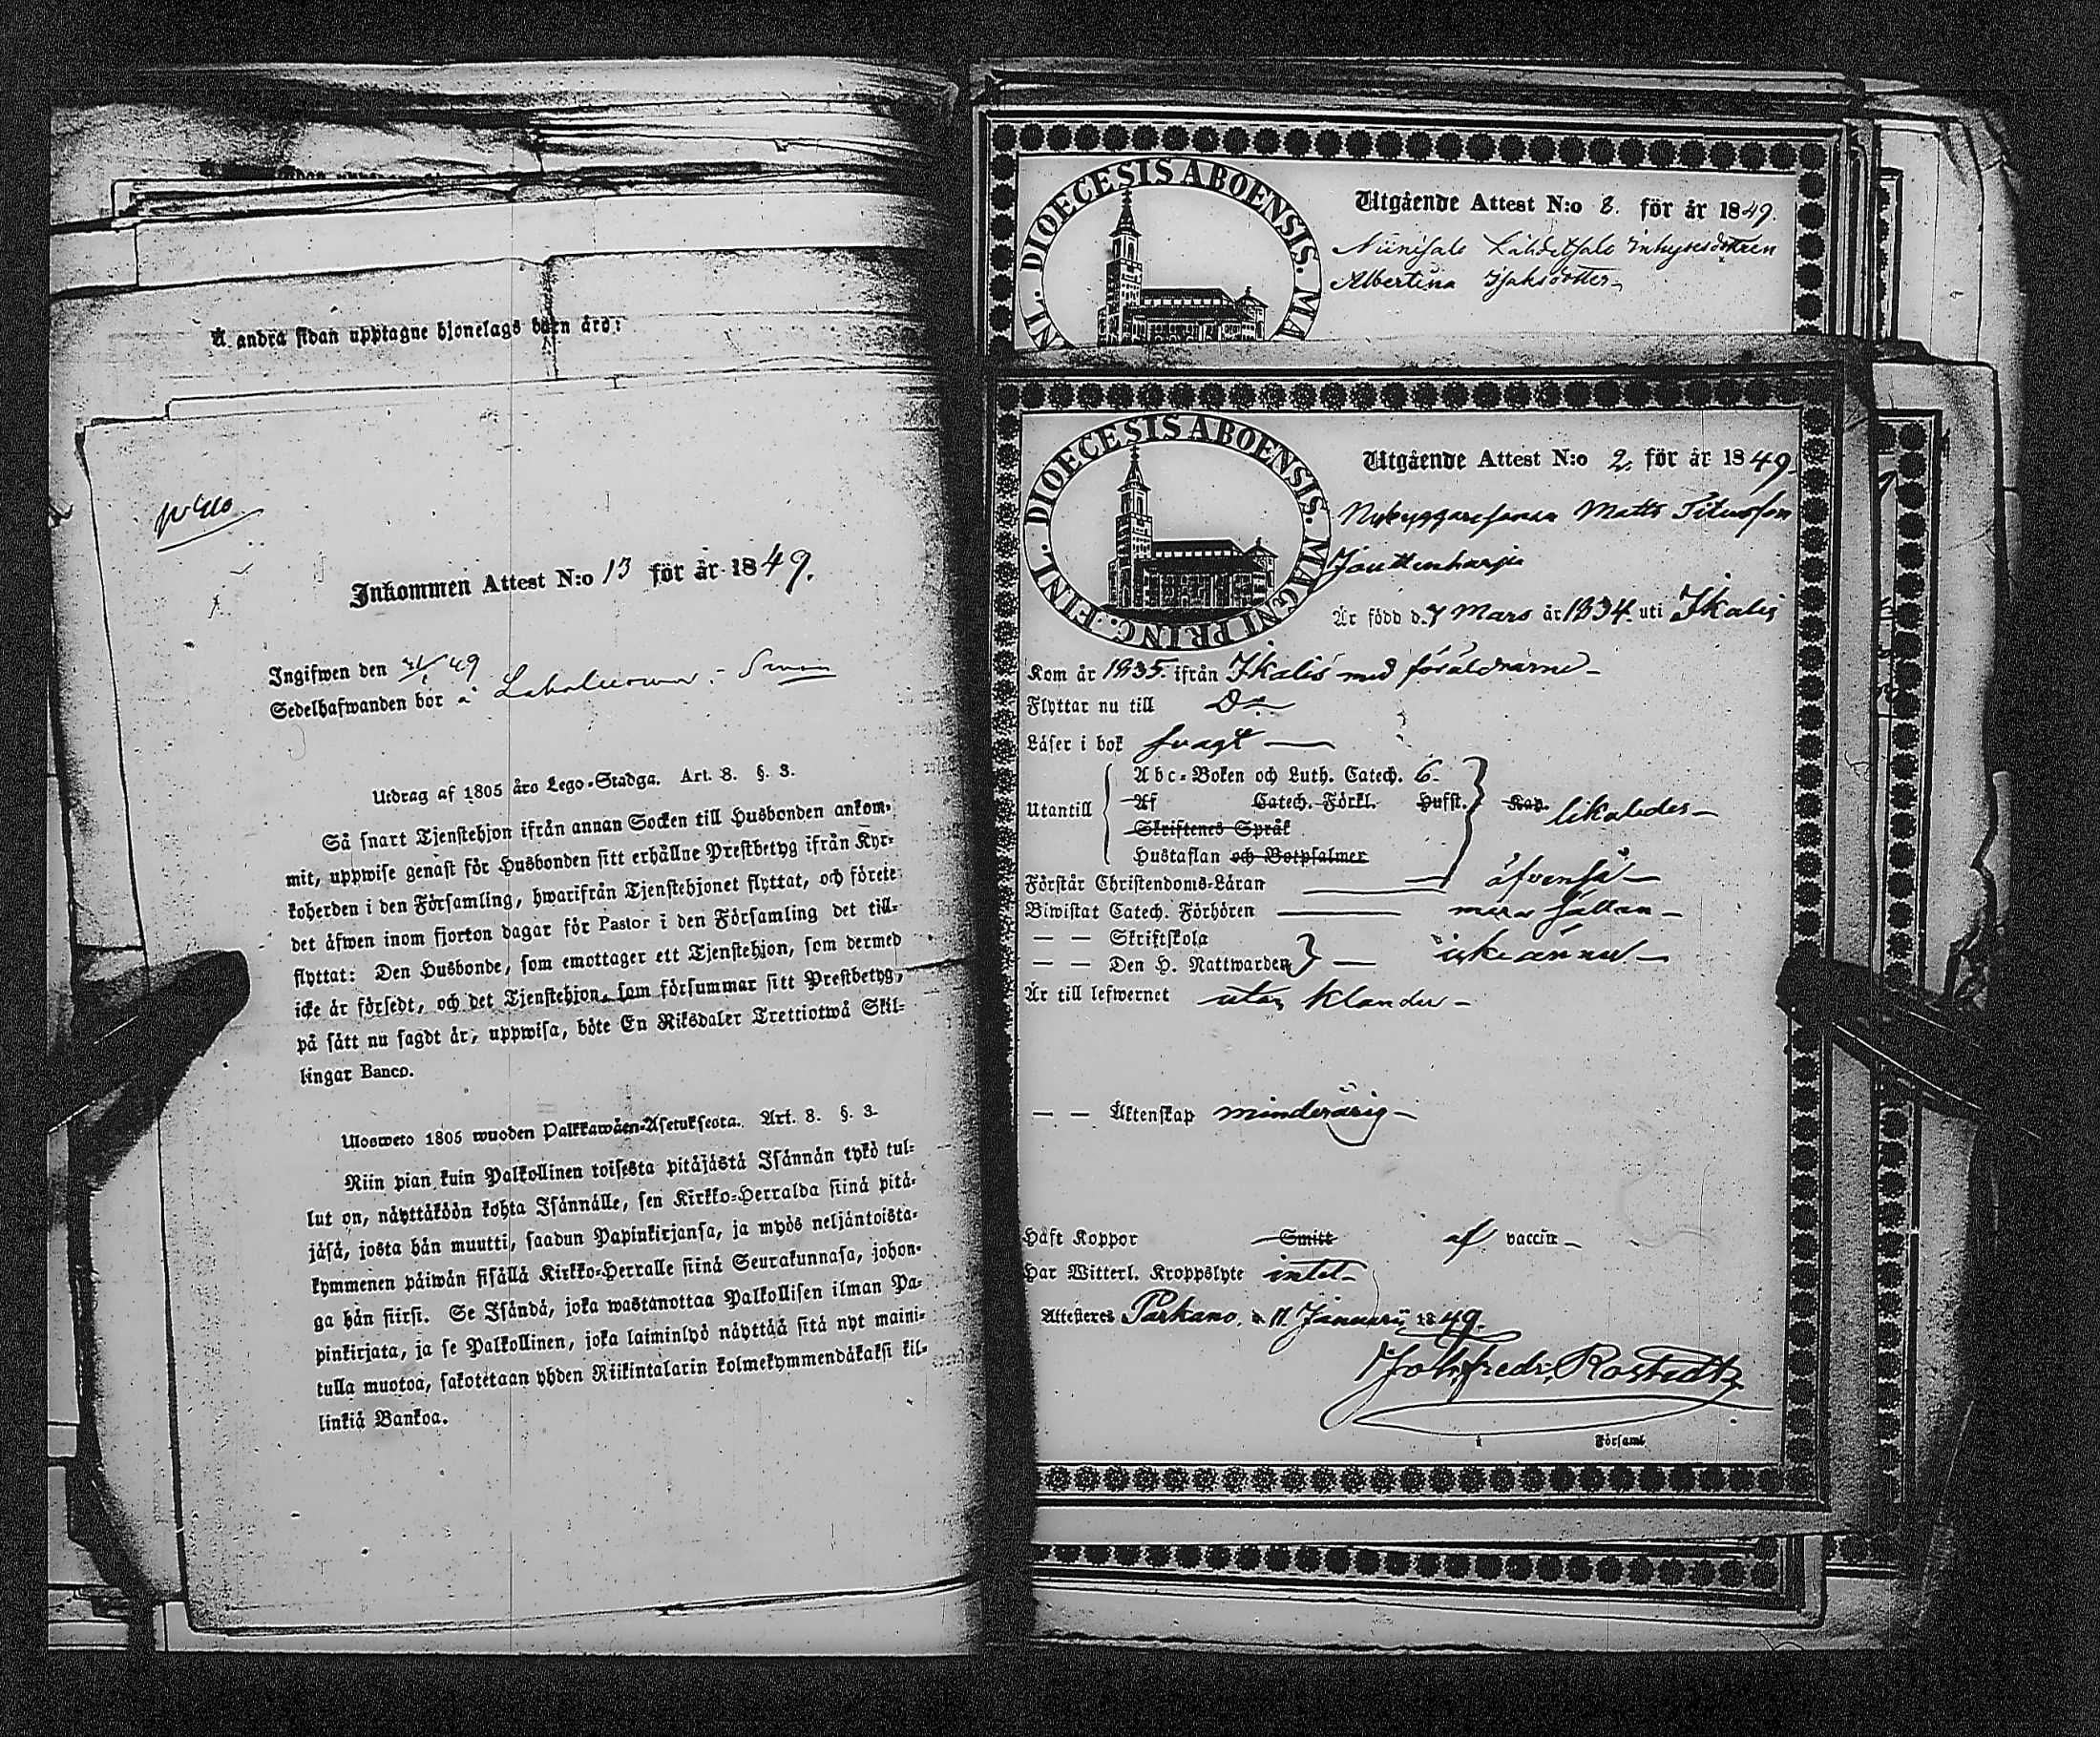 Å andra sidan upptagne hjonelags barn äro:
Inkommen Attest N:o 13 för år 1849.
Ingifwen den
Sedelhafwanden bor å
Utdrag af 1805 års Lego-Stadga. Art. 8. §. 3.
Så snart Tjenstehjon ifrån annan Socken till Husbonden ankom-
mit, uppwise genast för Husbonden sitt erhållne Prestbetyg ifrån Kyr-
koherden i den Församling, hwarifrån Tjenstehjonet flyttat, och förete
det äfwen inom fjorton dagar för Pastor i den Församling det till-
flyttat: Den Husbonde, som emottager ett Tjenstehjon, som dermed
icke är försedt, och det Tjenstehjon, som försummar sitt Prestbetyg,
på sätt nu sagdt är, uppwisa, böte En Riksdaler Trettiotwå Skil-
lingar Banco.
Ulosweto 1805 wuoden Palkkawäen-Asetuksesta. Art. 8. §. 3.
Niin pian kuin Palkollinen toisesta pitäjästä Isännän tykö tul-
lut on, näyttäköön kohta Isännälle, sen Kirkko-Herralda siinä pitä-
jäsä, josta hän muutti, saadun Papinkirjansa, ja myös neljäntoista-
kymmenen päiwän sisällä Kirkko-Herralle siinä Seurakunnasa, johon-
ga hän siirsi. Se Isändä, joka wastanottaa Palkollisen ilman Pa-
pinkirjata, ja se Palkollinen, joka laiminlyö näyttää sitä nyt maini-
tulla muotoa, sakotetaan yhden Riikintalarin kolmekymmendäkaksi kil-
linkiä Bankoa.
DIOECESIS ABOENSIS. MA
NL.
Utgående Attest N:o 8. för år 1849.
Niinisalo Inhysesdottren
Albertina Isaksdotter
DIOECESIS ABOENSIS. MAGNI PRINC. FINL.
Utgående Attest N:o 2. för år 1849.
Nybyggaresonen Matts Titusson
Jouttenharju
Är född d. 7 Mars år 1834. uti Ikalis
Kom år 1835. ifrån Ikalis med föräldrarne
Flyttar nu till Do
Läser i bok svagt
Abc-Boken och Luth. Catech. 6
Utantill Af Catech. Förkl. Hufst. Kap. likaledes
Skriftenes Språk
Hustaflan och Botpsalmer
Förstår Christendoms-Läran äfvenså
Biwistat Catech. Förhören mera sällan
— — Skriftskola
— — Den H. Nattwarden icke ännu
Är till lefwernet utan klander
— — Äktenskap minderårig
Haft Koppor Smitt af vaccin
Har Witterl. Kroppslyte intet
Attesteras Parkano, d. 11 Januarii 1849.
Joh. Fredr. Rostedt
i Församl.